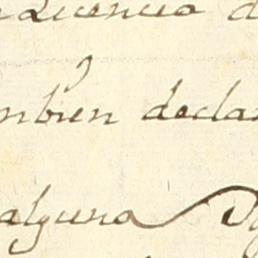 Licencia d
mbien declar
alguna